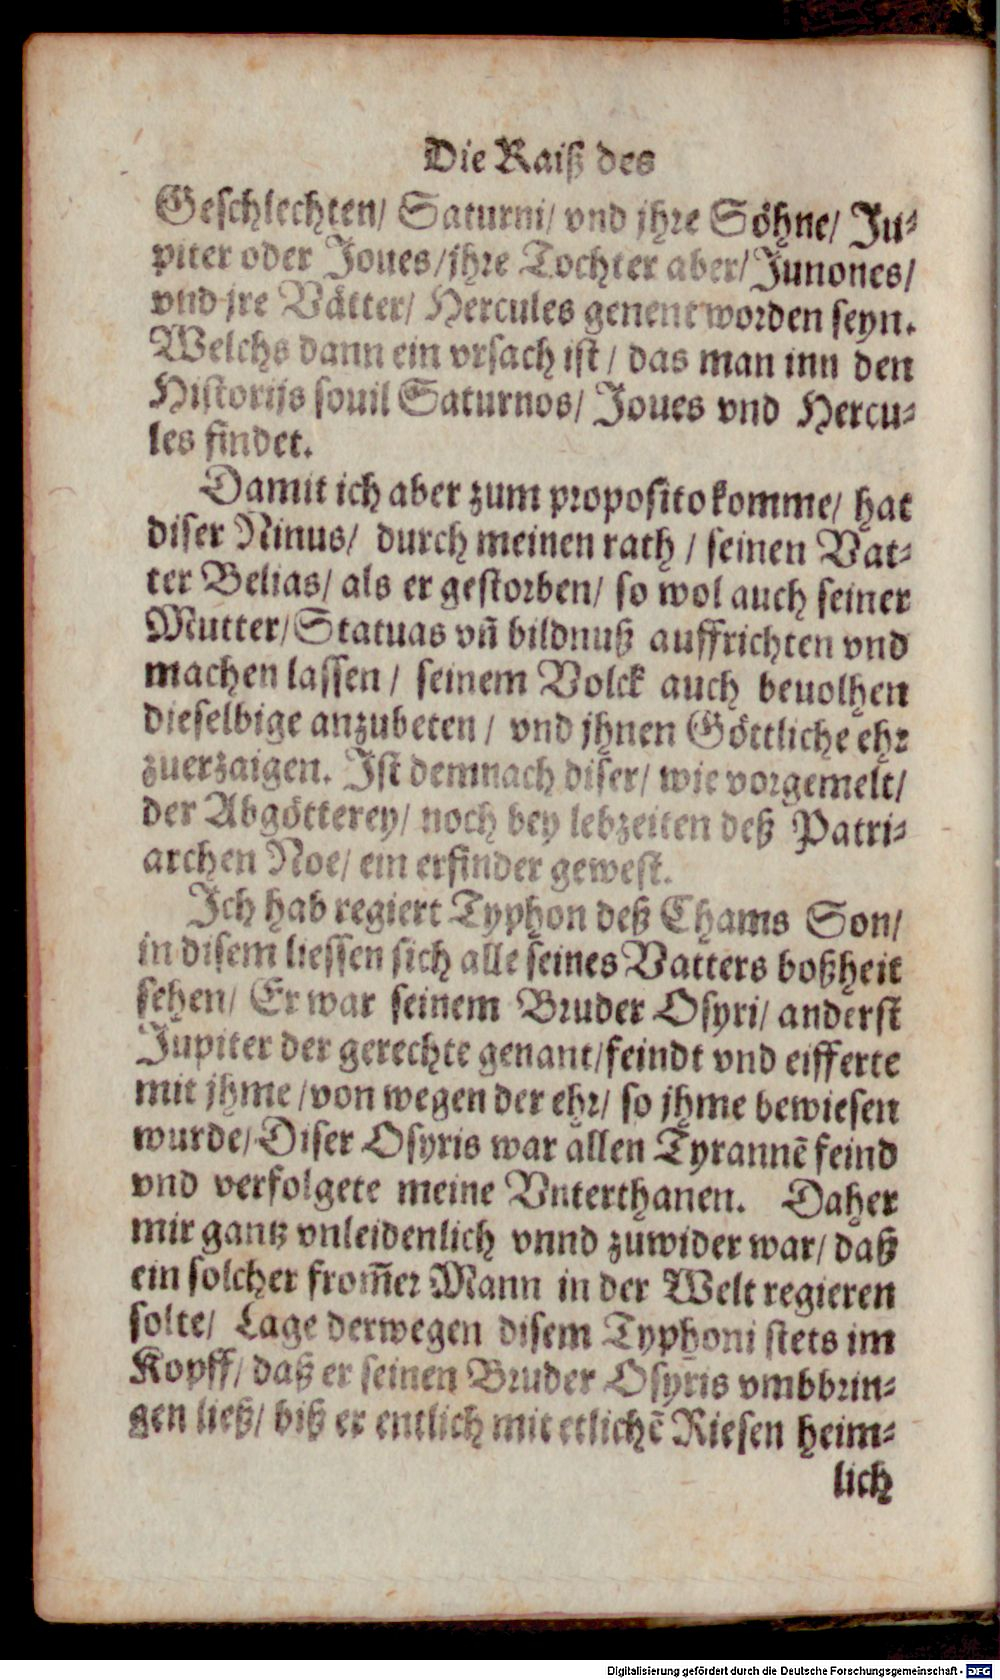 Die Raiß des
Geschlechten/ Saturni/ vnd jhre Söhne/ Ju⸗
piter oder Joues/ jhre Tochter aber/ Junones/
vnd jre Vätter/ Hercules genent worden seyn.
Welchs dann ein vrsach ist/ das man inn den
Historijs souil Saturnos/ Joues vnd Hercu⸗
les findet.
Damit ich aber zum proposito komme/ hat
diser Ninus/ durch meinen rath/ seinen Vat⸗
ter Belias/ als er gestorben/ so wol auch seiner
Mutter/ Statuas vñ bildnuß auffrichten vnd
machen lassen/ seinem Volck auch beuolhen
dieselbige anzubeten/ vnd jhnen Göttliche ehr
zuerzaigen. Ist demnach diser/ wie vorgemelt/
der Abgötterey/ noch bey lebzeiten deß Patri⸗
archen Noe/ ein erfinder gewest.
Ich hab regiert Typhon deß Chams Son/
in disem liessen sich alle seines Vatters boßheit
sehen/ Er war seinem Bruder Osyri/ anderst
Jupiter der gerechte genant/ feindt vnd eifferte
mit jhme/ von wegen der ehr/ so jhme bewiesen
wurde/ Diser Osyris war allen Tyrannē feind
vnd verfolgete meine Vnterthanen. Daher
mir gantz vnleidenlich vnnd zuwider war/ daß
ein solcher from̃er Mann in der Welt regieren
solte/ Lage derwegen disem Typhoni stets im
Kopff/ daß er seinen Bruder Osyris vmbbrin⸗
gen ließ/ biß er entlich mit etlichē Riesen heim⸗
lich
Digitalisierung gefördert durch die Deutsche Forschungsgemeinschaft - DFG